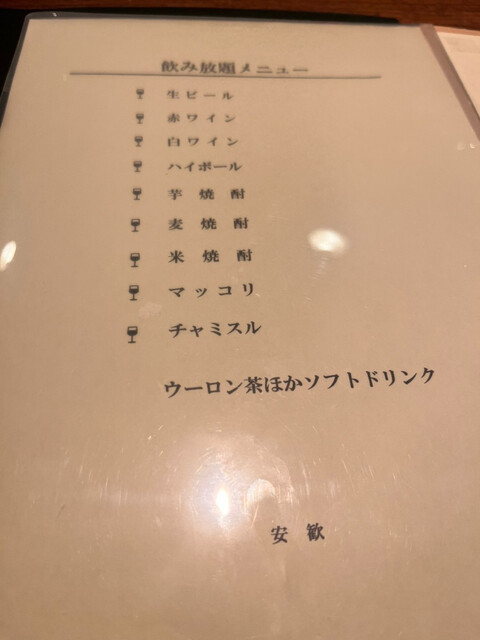 飲み放題メニュー
生ビール
赤ワイン
白ワイン
ハイボール
芋焼酎
麦焼酎
米焼酎
マッコリ
チャミスル
ウーロン茶ほかソフトドリンク
安歓